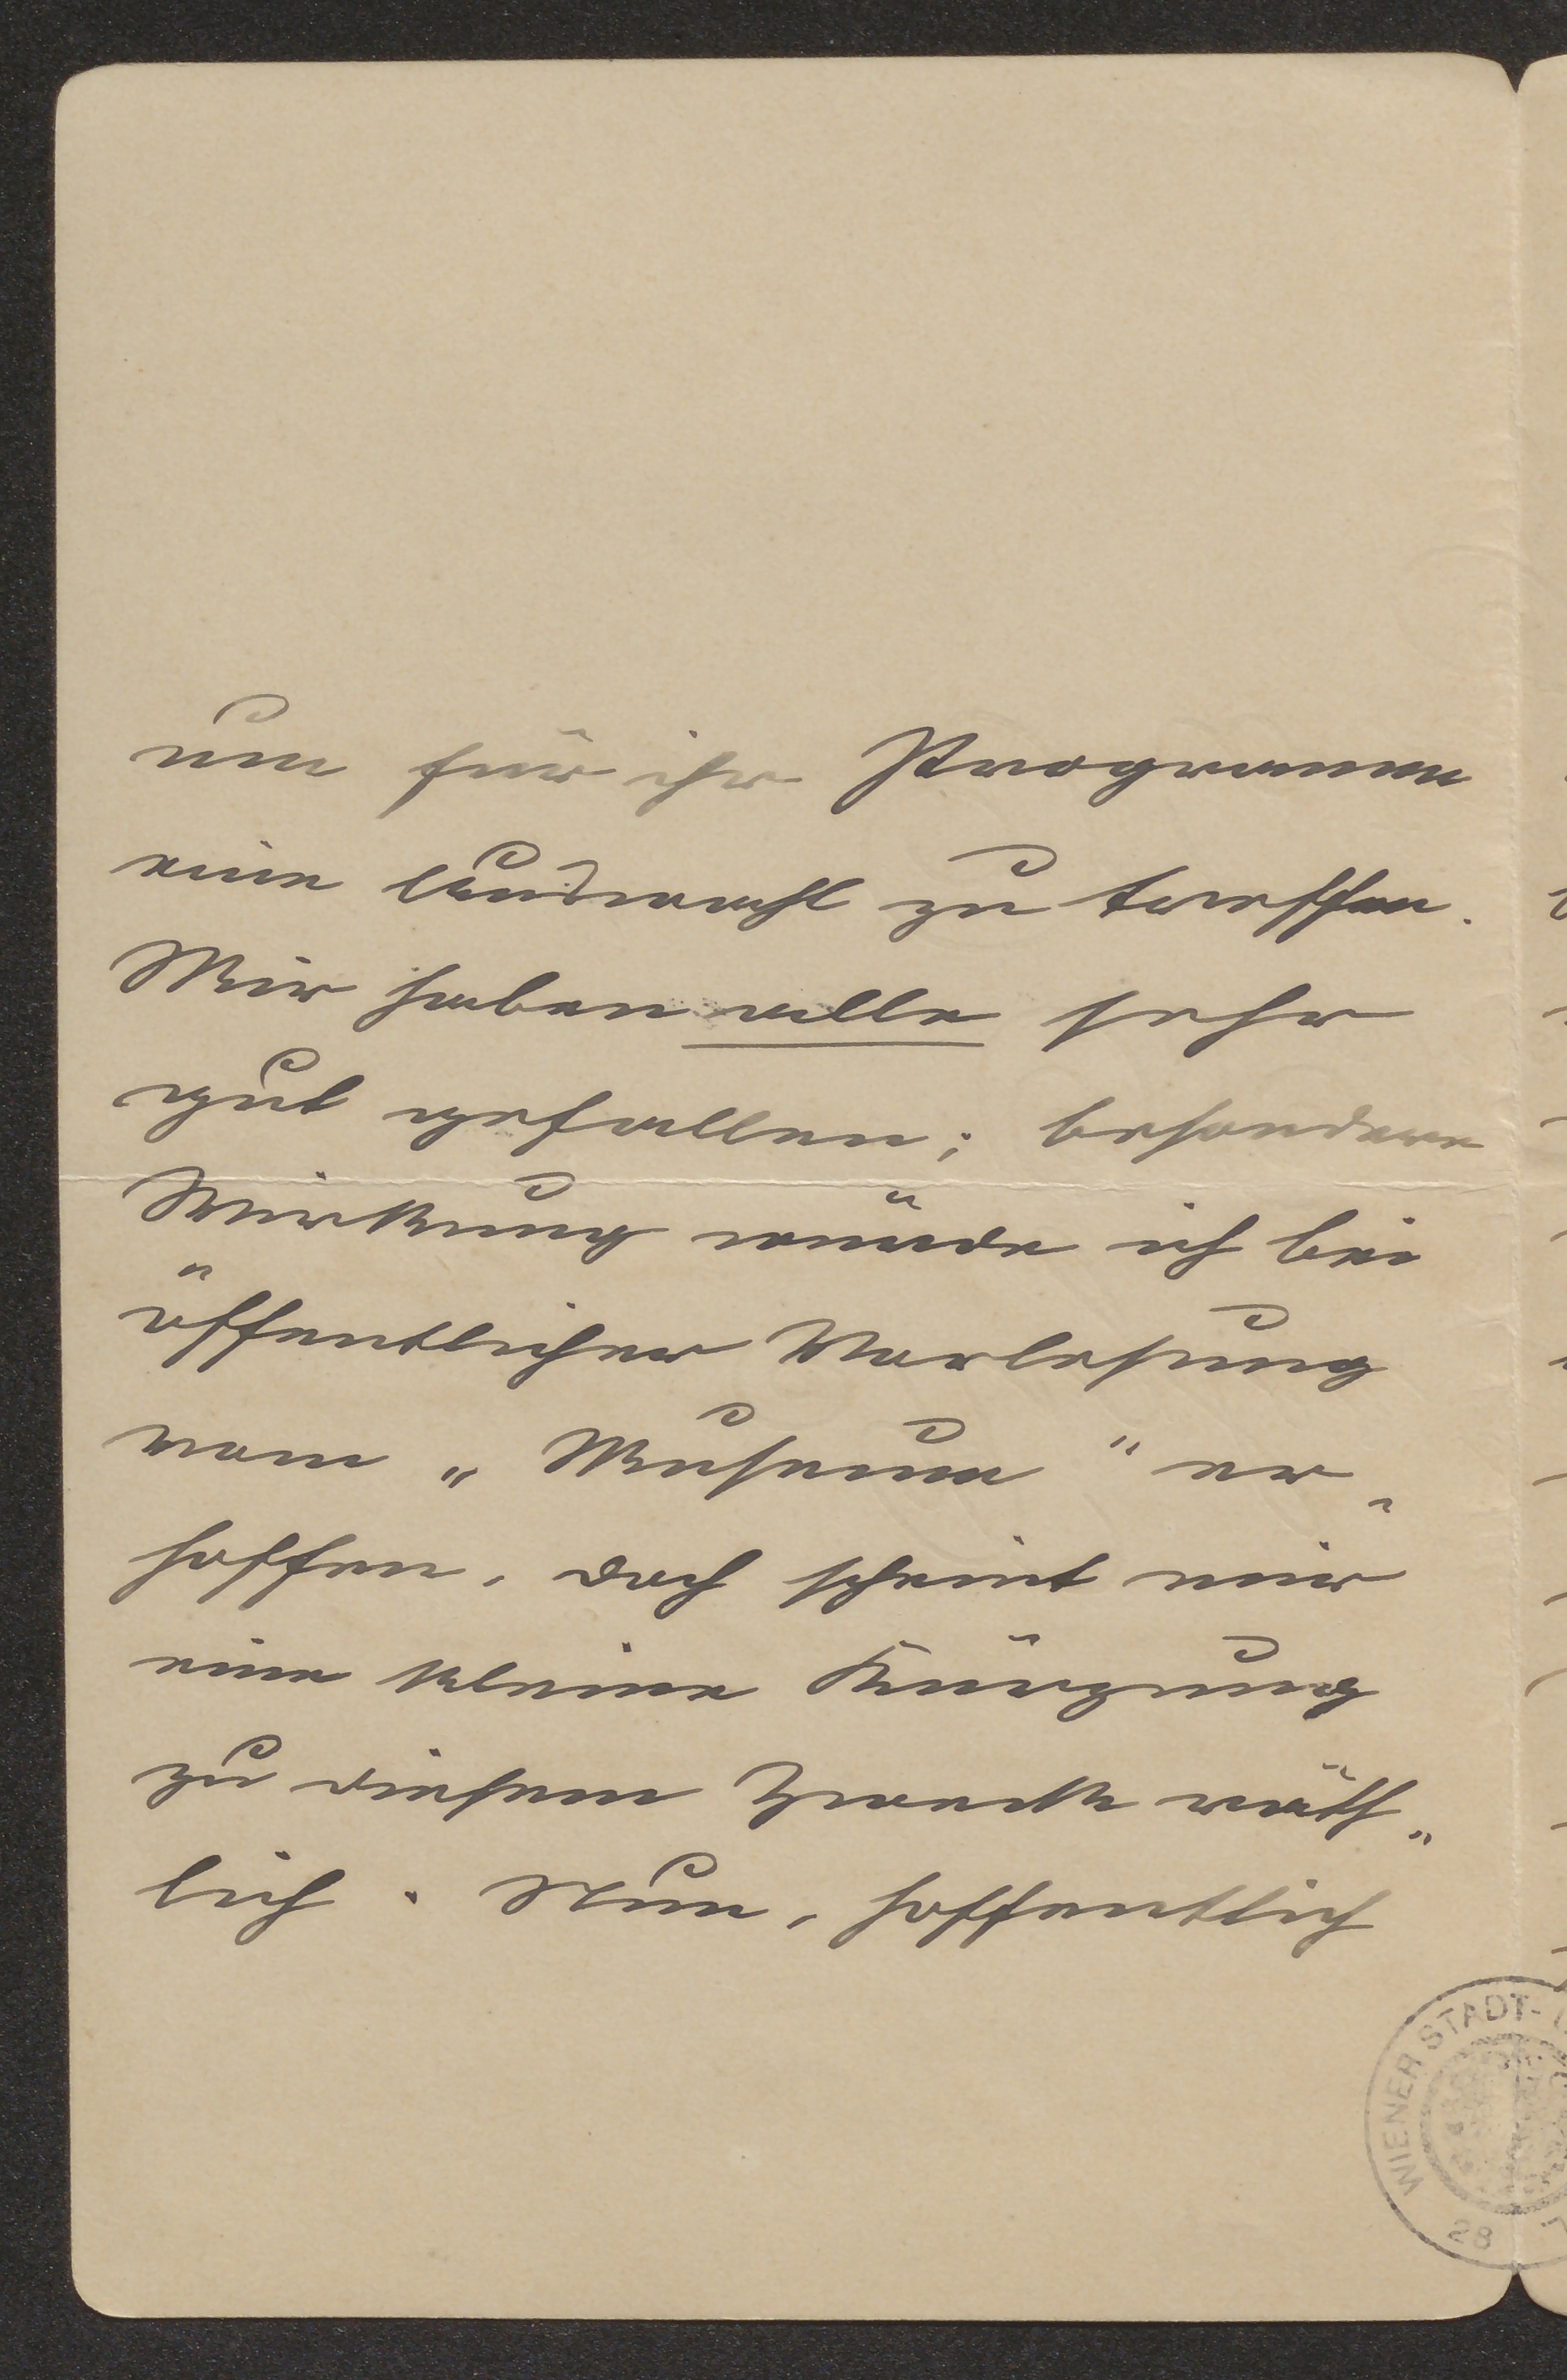 um für ihr Programm
eine Auswahl zu treffen.
Mir haben alle sehr
gut gefallen; besondere
Wirkung würde ich bei
öffentlicher Vorlesung
vom „Museum“ er-
hoffen, doch scheint mir
eine kleine Kürzung
zu diesem Zweck räth-
lich. Nun, hoffentlich
WIENER STADT-
28